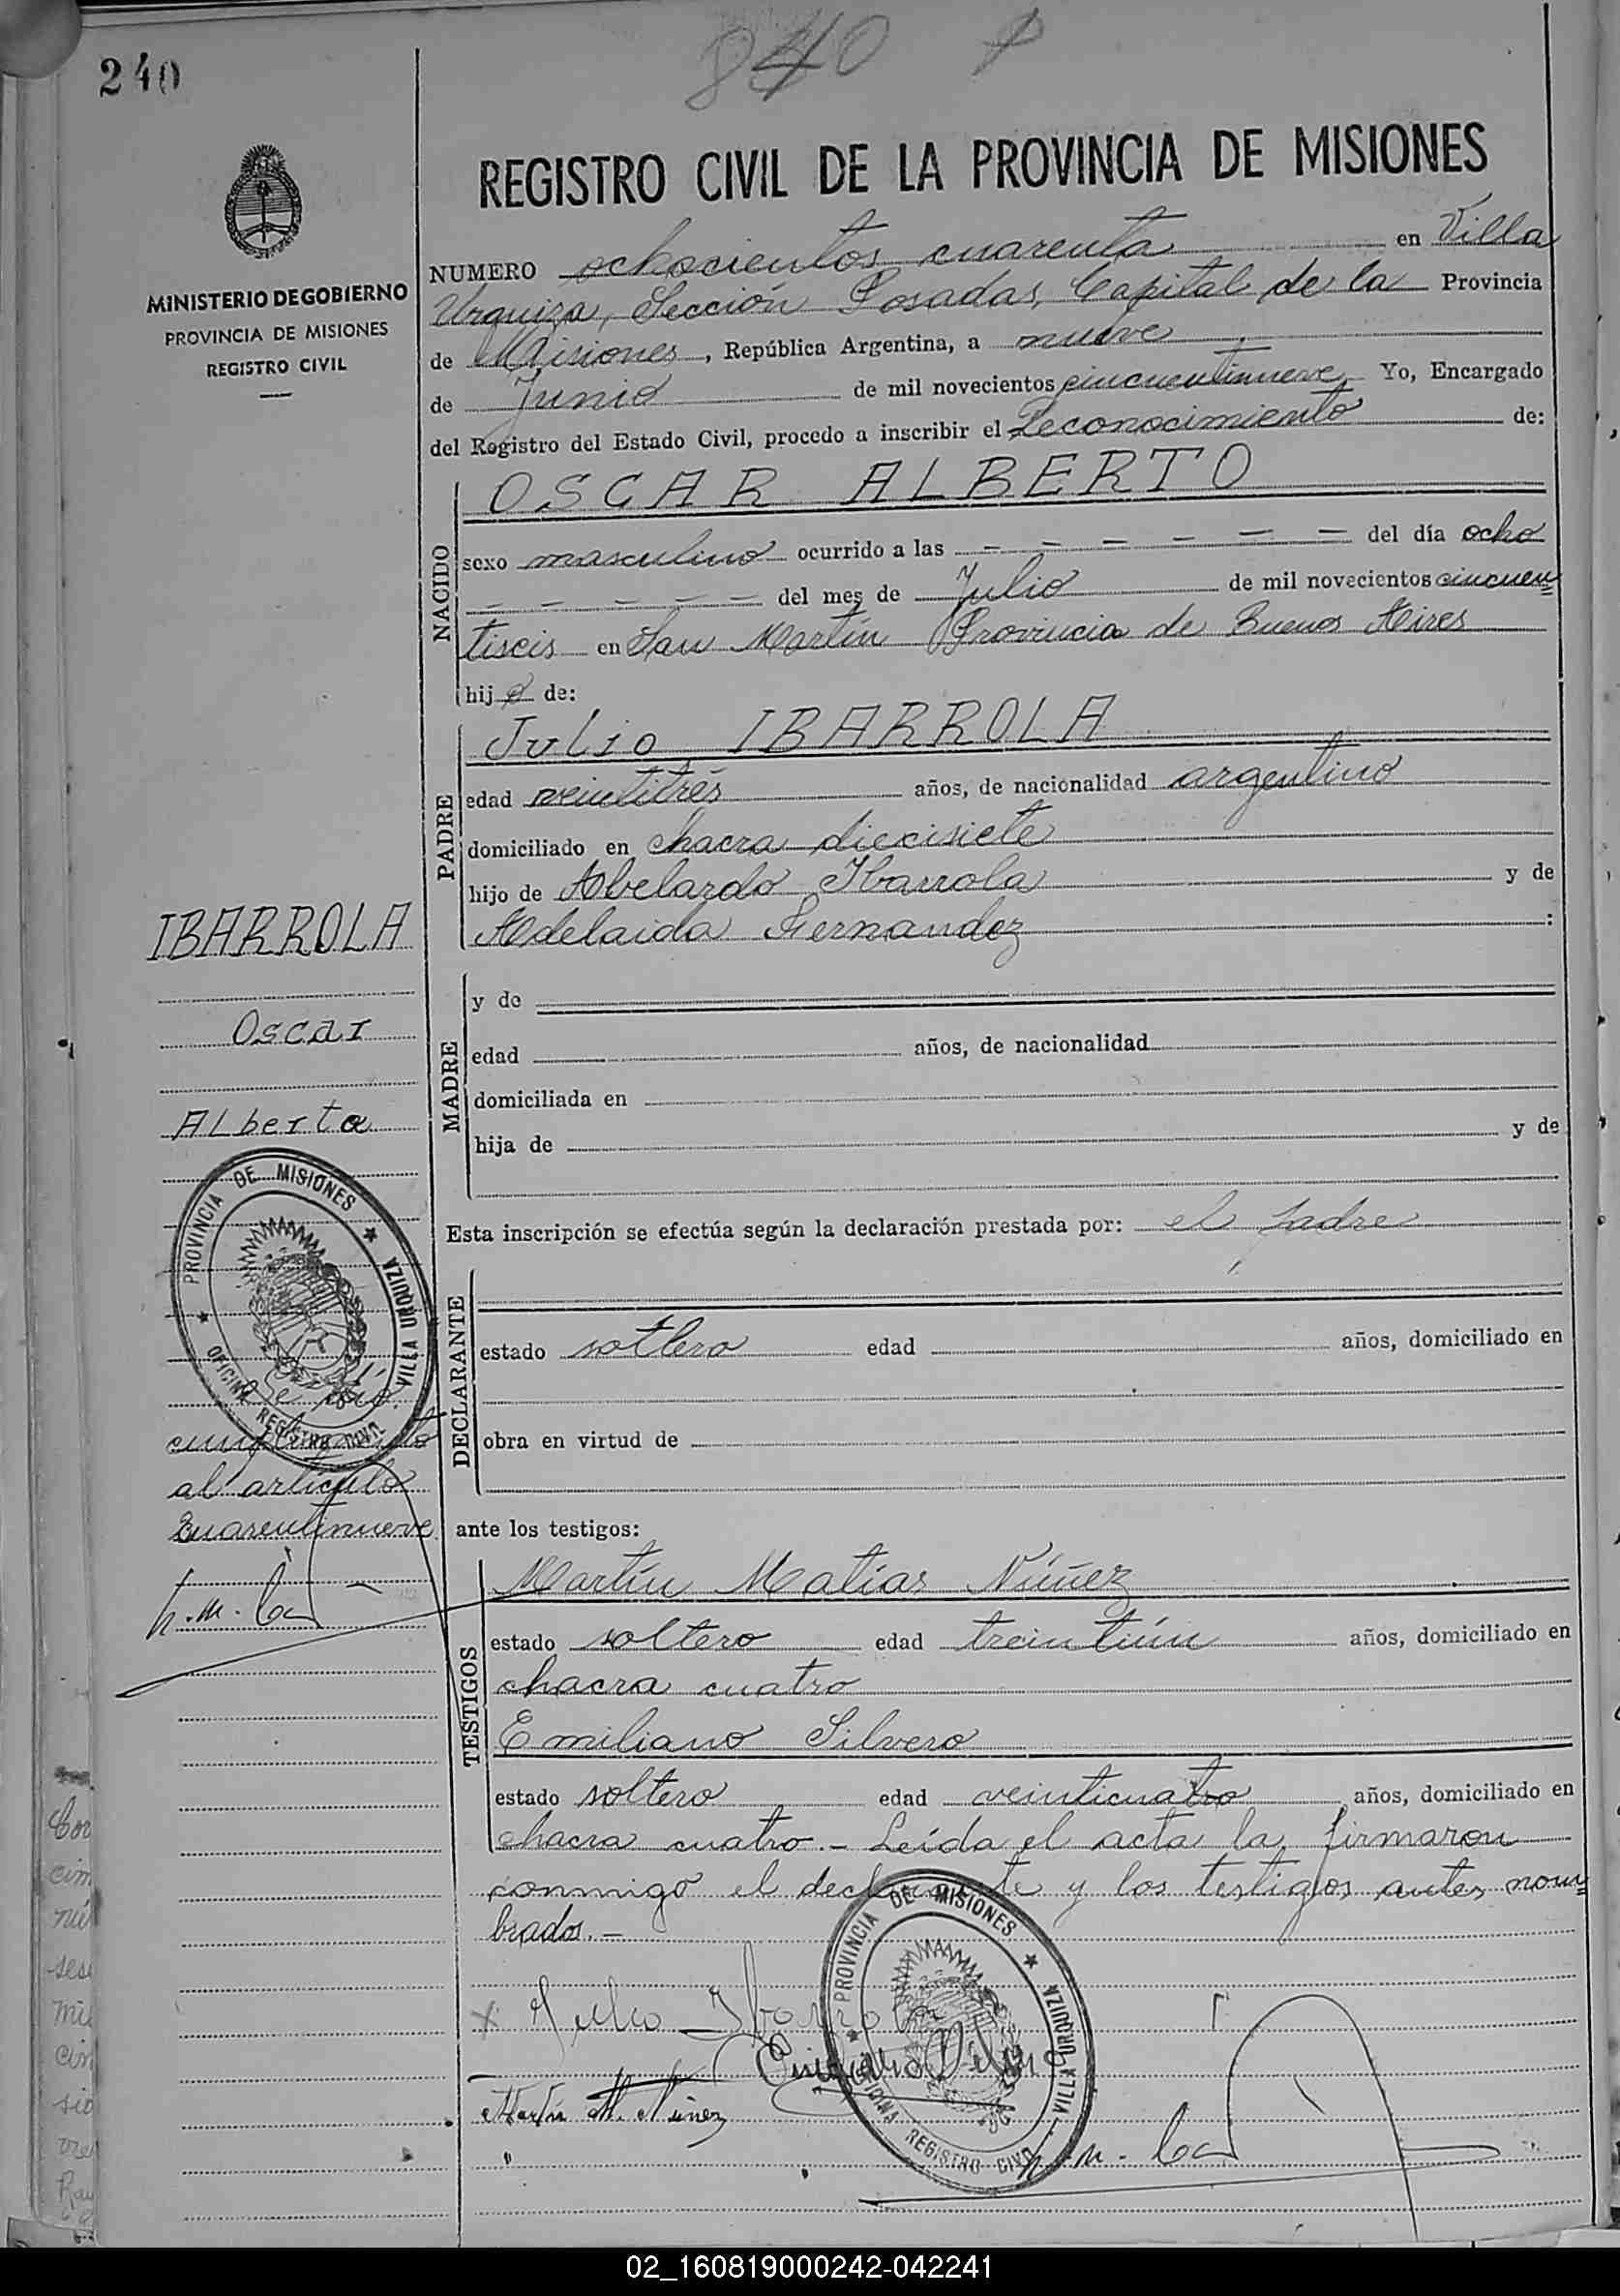 240
840
REGISTRO CIVIL DE LA PROVINCIA DE MISIONES
MINISTERIO DE GOBIERNO
PROVINCIA DE MISIONES
REGISTRO CIVIL
NUMERO ochocientos cuarenta en Villa
Urquiza, Sección Posadas, Capital de la Provincia
de Misiones, República Argentina, a nueve
de Junio de mil novecientos cincuentinueve, Yo, Encargado
del Registro del Estado Civil, procedo a inscribir el Reconocimiento de:
NACIDO
OSCAR ALBERTO
sexo masculino ocurrido a las - - - - - - del día ocho
- - - - - - del mes de Julio de mil novecientos cincuen
tiseis en San Martín Provincia de Buenos Aires
hijo de:
PADRE
Julio IBARROLA
edad veintitrés años, de nacionalidad argentino
domiciliado en chacra diecisiete
hijo de Abelardo Ibarrola y de
Adelaida Fernandez :
IBARROLA
Oscar
Alberto
MADRE
y de
edad años, de nacionalidad
domiciliada en
hija de y de
Esta inscripción se efectúa según la declaración prestada por: el padre
DECLARANTE
estado soltero edad años, domiciliado en
obra en virtud de
PROVINCIA DE MISIONES ★ VILLA URQUIZA
OFICINA REGISTRO CIVIL ★
Se dió
cumplimiento
al artículo
cuarentinueve
ante los testigos:
TESTIGOS
Martín Matías Núñez
estado soltero edad treintiún años, domiciliado en
chacra cuatro
Emiliano Silvero
estado soltero edad veinticuatro años, domiciliado en
chacra cuatro.- Leída el acta la firmaron
conmigo el declarante y los testigos antes nom
brados.-
x Julio Ibarrola
Martín M. Núñez
PROVINCIA DE MISIONES ★ VILLA URQUIZA
OFICINA REGISTRO CIVIL ★
02_160819000242-042241